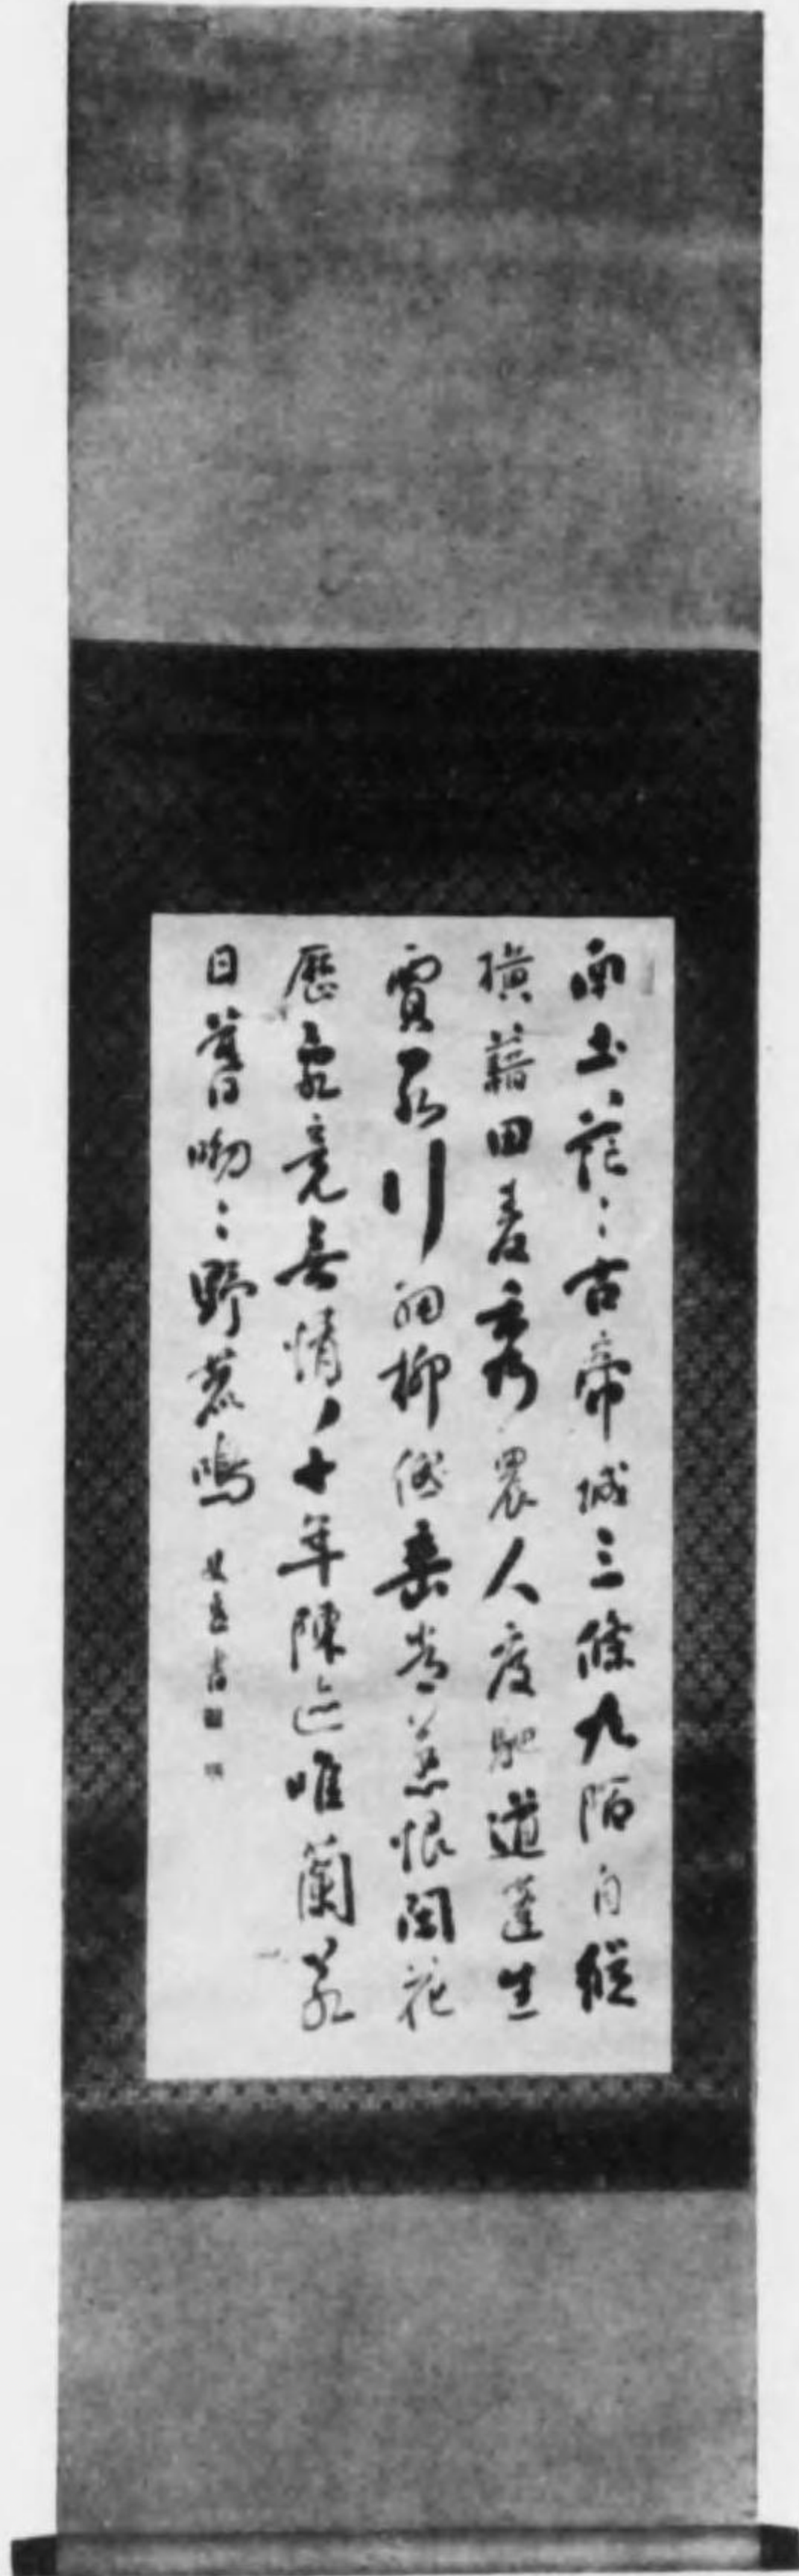 南土茫々古帝城三條九陌自縱
橫藉田麥秀農人度馳道蓬生
賈客行細柳低垂常惹恨閑花
歷亂竟無情千年陳迹唯蘭若
日暮呦々野鹿鳴